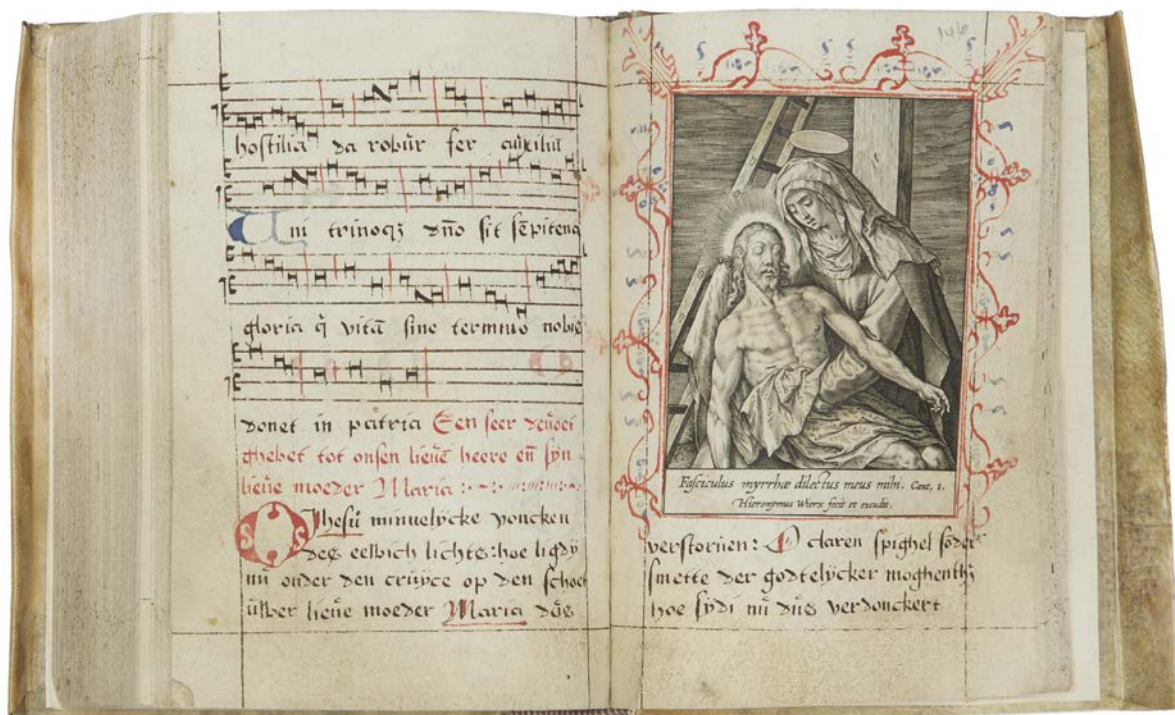 hostilia da robur fer auxiliu
Uni trinoq3 dno sit sepitena
gloria q vita sine termino nobis
donet in patria Een seer devoet
ghebet tot onsen lieve heere en syn
lieve moeder Maria
O Jhesu minnelycke voncken
des eelbich lichts: hoe ligdy
nu onder den cruyce op den schoet
uwer lieve moeder Maria dus
146
Fasciculus myrrhæ dilectus meus mihi. Cant. 1.
Hieronymus Wierx fecit et excudit.
verstorven: O claren spighel sōder
smette der godtelycker moghenth3
hoe sydi nu dus verdonckert